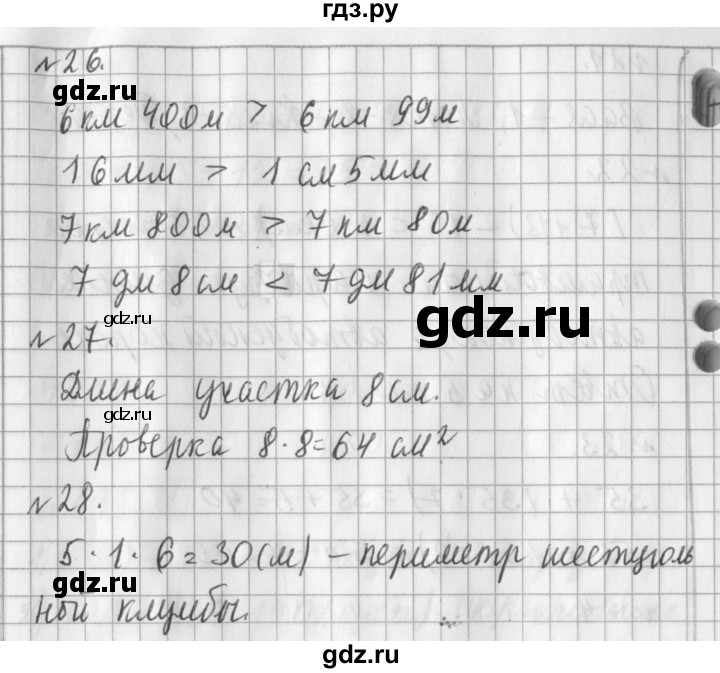 гдз.ру
№26.
gdz.ru
6 км 400м > 6 км 99м
16мм > 1 см 5мм
7км 800м > 7 км 80м
7 дм 8 см < 7 дм 81мм
gdz.ru
gdz.ru
№27.
Длина участка 8 см.
gdz.ru
Проверка 8·8=64 см²
№28.
5·1·6=30(м) – периметр шестуголь
gdz.ru
ной клумбы.
gdz.ru